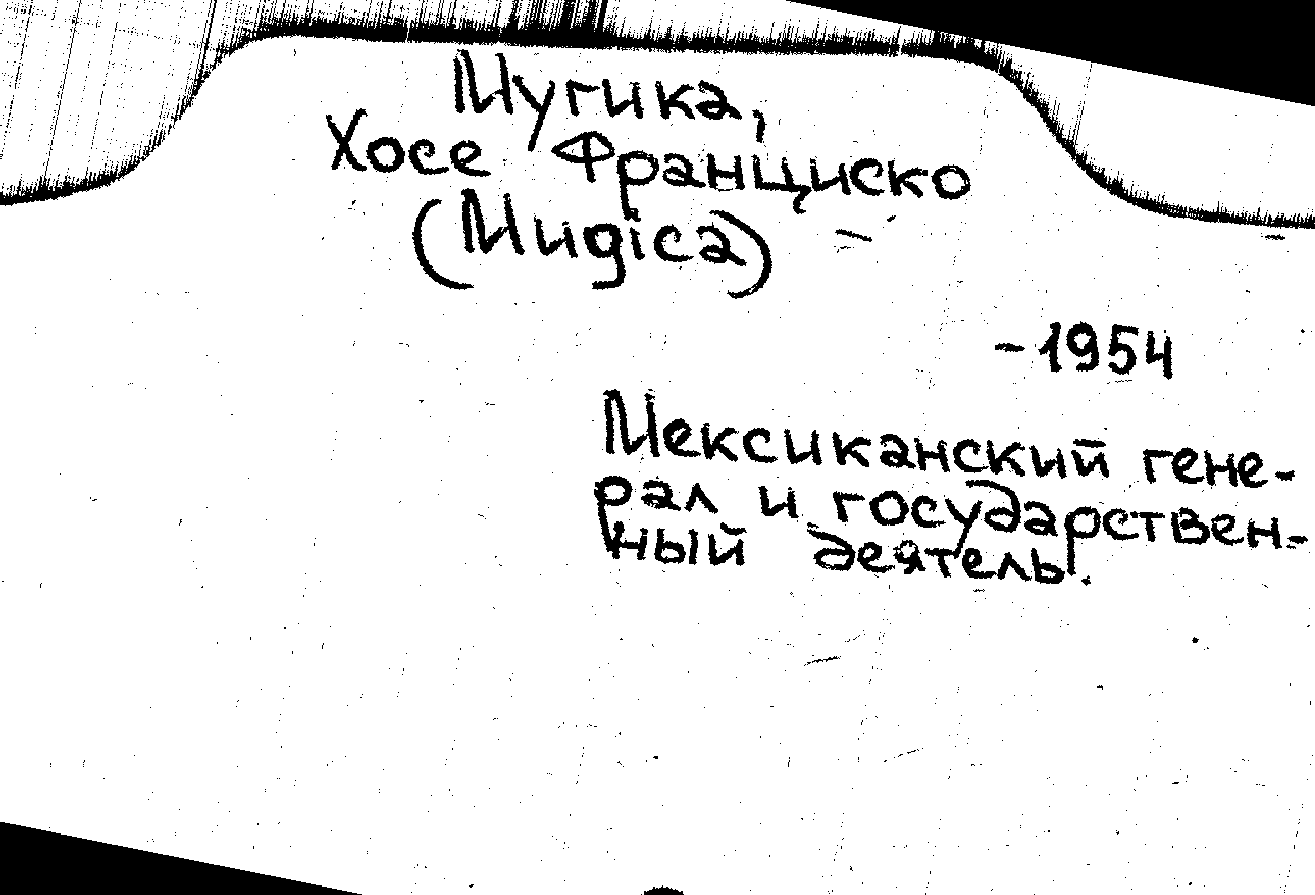 Мугика,
Хосе Франциско
(Mugica)
-1954
Мексиканский гене-
рал и государствен-
ный деятель.